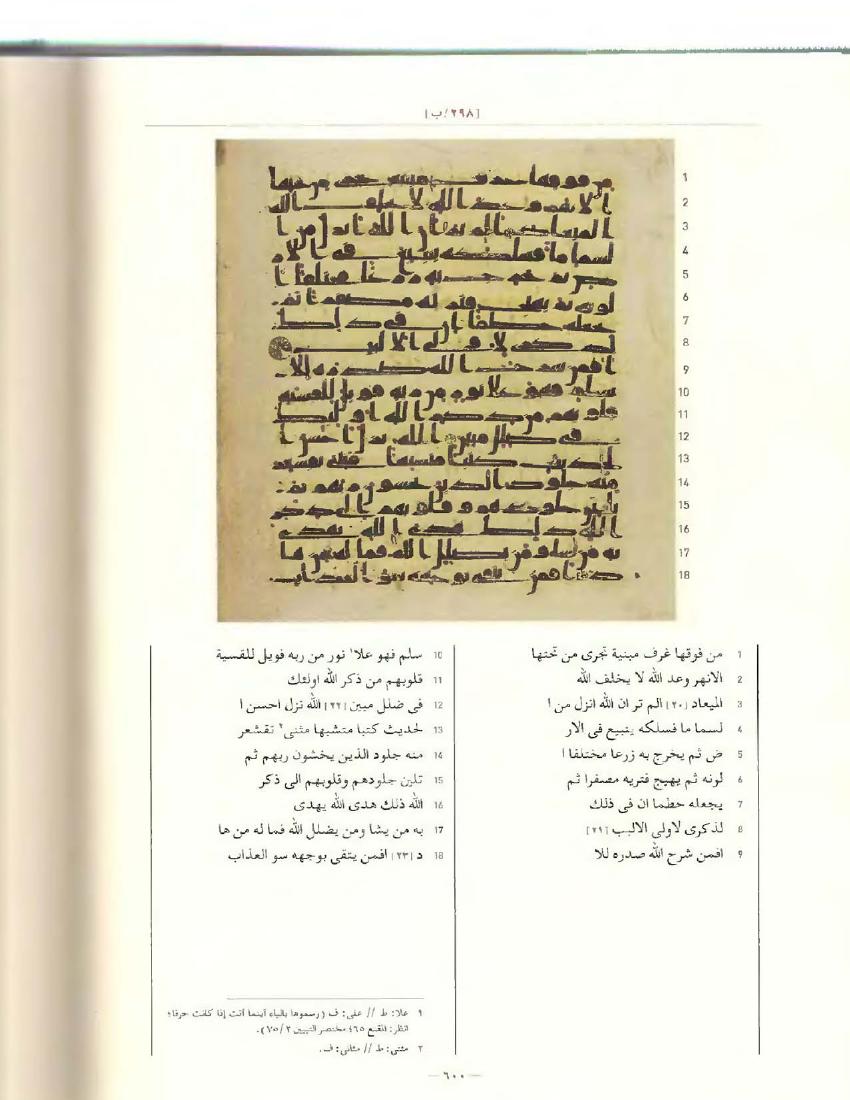 [٢٩٨/ب]
1 من فوقها غرف مبنية تجرى من تحتها
2 الانهر وعد الله لا يخلف الله
3 الميعاد [٢٠] الم تر ان الله انزل من ا
4 لسما ما فسلكه ينبيع فى الار
5 ض ثم يخرج به زرعا مختلفا ا
6 لونه ثم يهيج فتريه مصفرا ثم
7 يجعله حطما ان فى ذلك
8 لذكرى لاولى الالبب [٢١]
9 افمن شرح الله صدره للا
10 سلم فهو علا١ نور من ربه فويل للقسية
11 قلوبهم من ذكر الله اولئك
12 فى ضلل مبين [٢٢] الله نزل احسن ا
13 لحديث كتبا متشبها مثنى٢ تقشعر
14 منه جلود الذين يخشون ربهم ثم
15 تلين جلودهم وقلوبهم الى ذكر
16 الله ذلك هدى الله يهدى
17 به من يشا ومن يضلل الله فما له من ها
18 د [٢٣] افمن يتقى بوجهه سو العذاب
١ علا: ط // على: ف (رسموها بالياء أينما أتت إذا كانت حرفا؛
انظر: المقنع ٦٥؛ مختصر التبيين ٧٥/٢).
٢ مثنى: ط // مثانى: ف.
— ٦٠٠ —